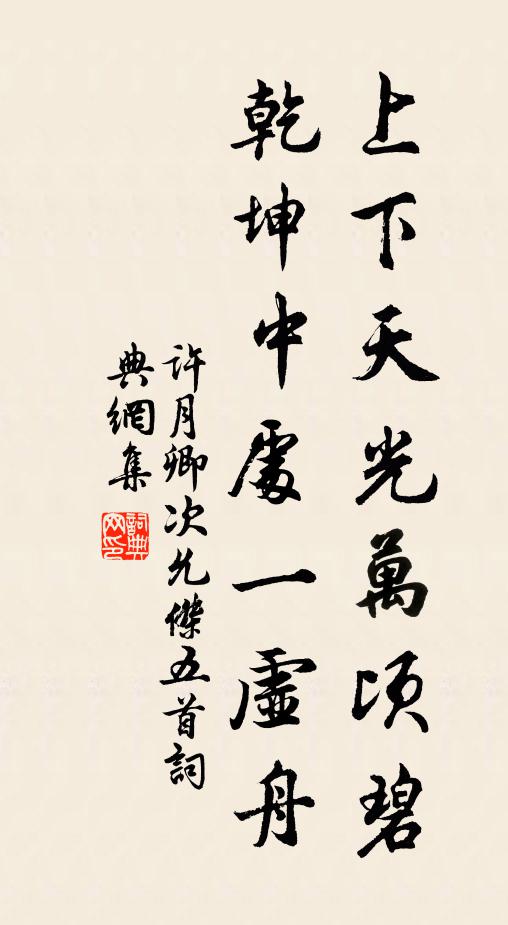 上下天光萬頃碧
乾坤中處一虛舟
許月卿次允傑五首詞
典網集
詞典網印